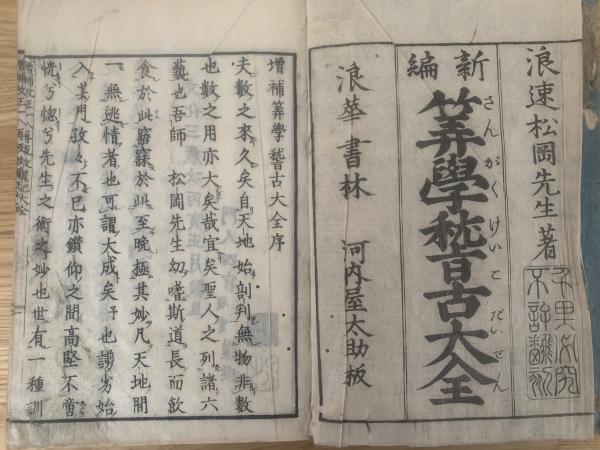 浪速松岡先生著
千里必究
不許翻刻
新編
筭學稽古大全
さんがくけいこだいぜん
浪華書林 河内屋太助板
增補筭學稽古大全序
夫數之來久矣自天地始剖判無物非數
也數之用亦大矣哉宜矣聖人之列諸六
藝也吾師 松岡先生幼嗜斯道長而飲
食於此寤寐於此至晚極其妙凡天地間
一無逃情者也可謂大成矣予也謭劣始
入其門孜々不已亦鑽仰之間高堅不啻
恍兮惚兮先生之術之妙也世有一種訓